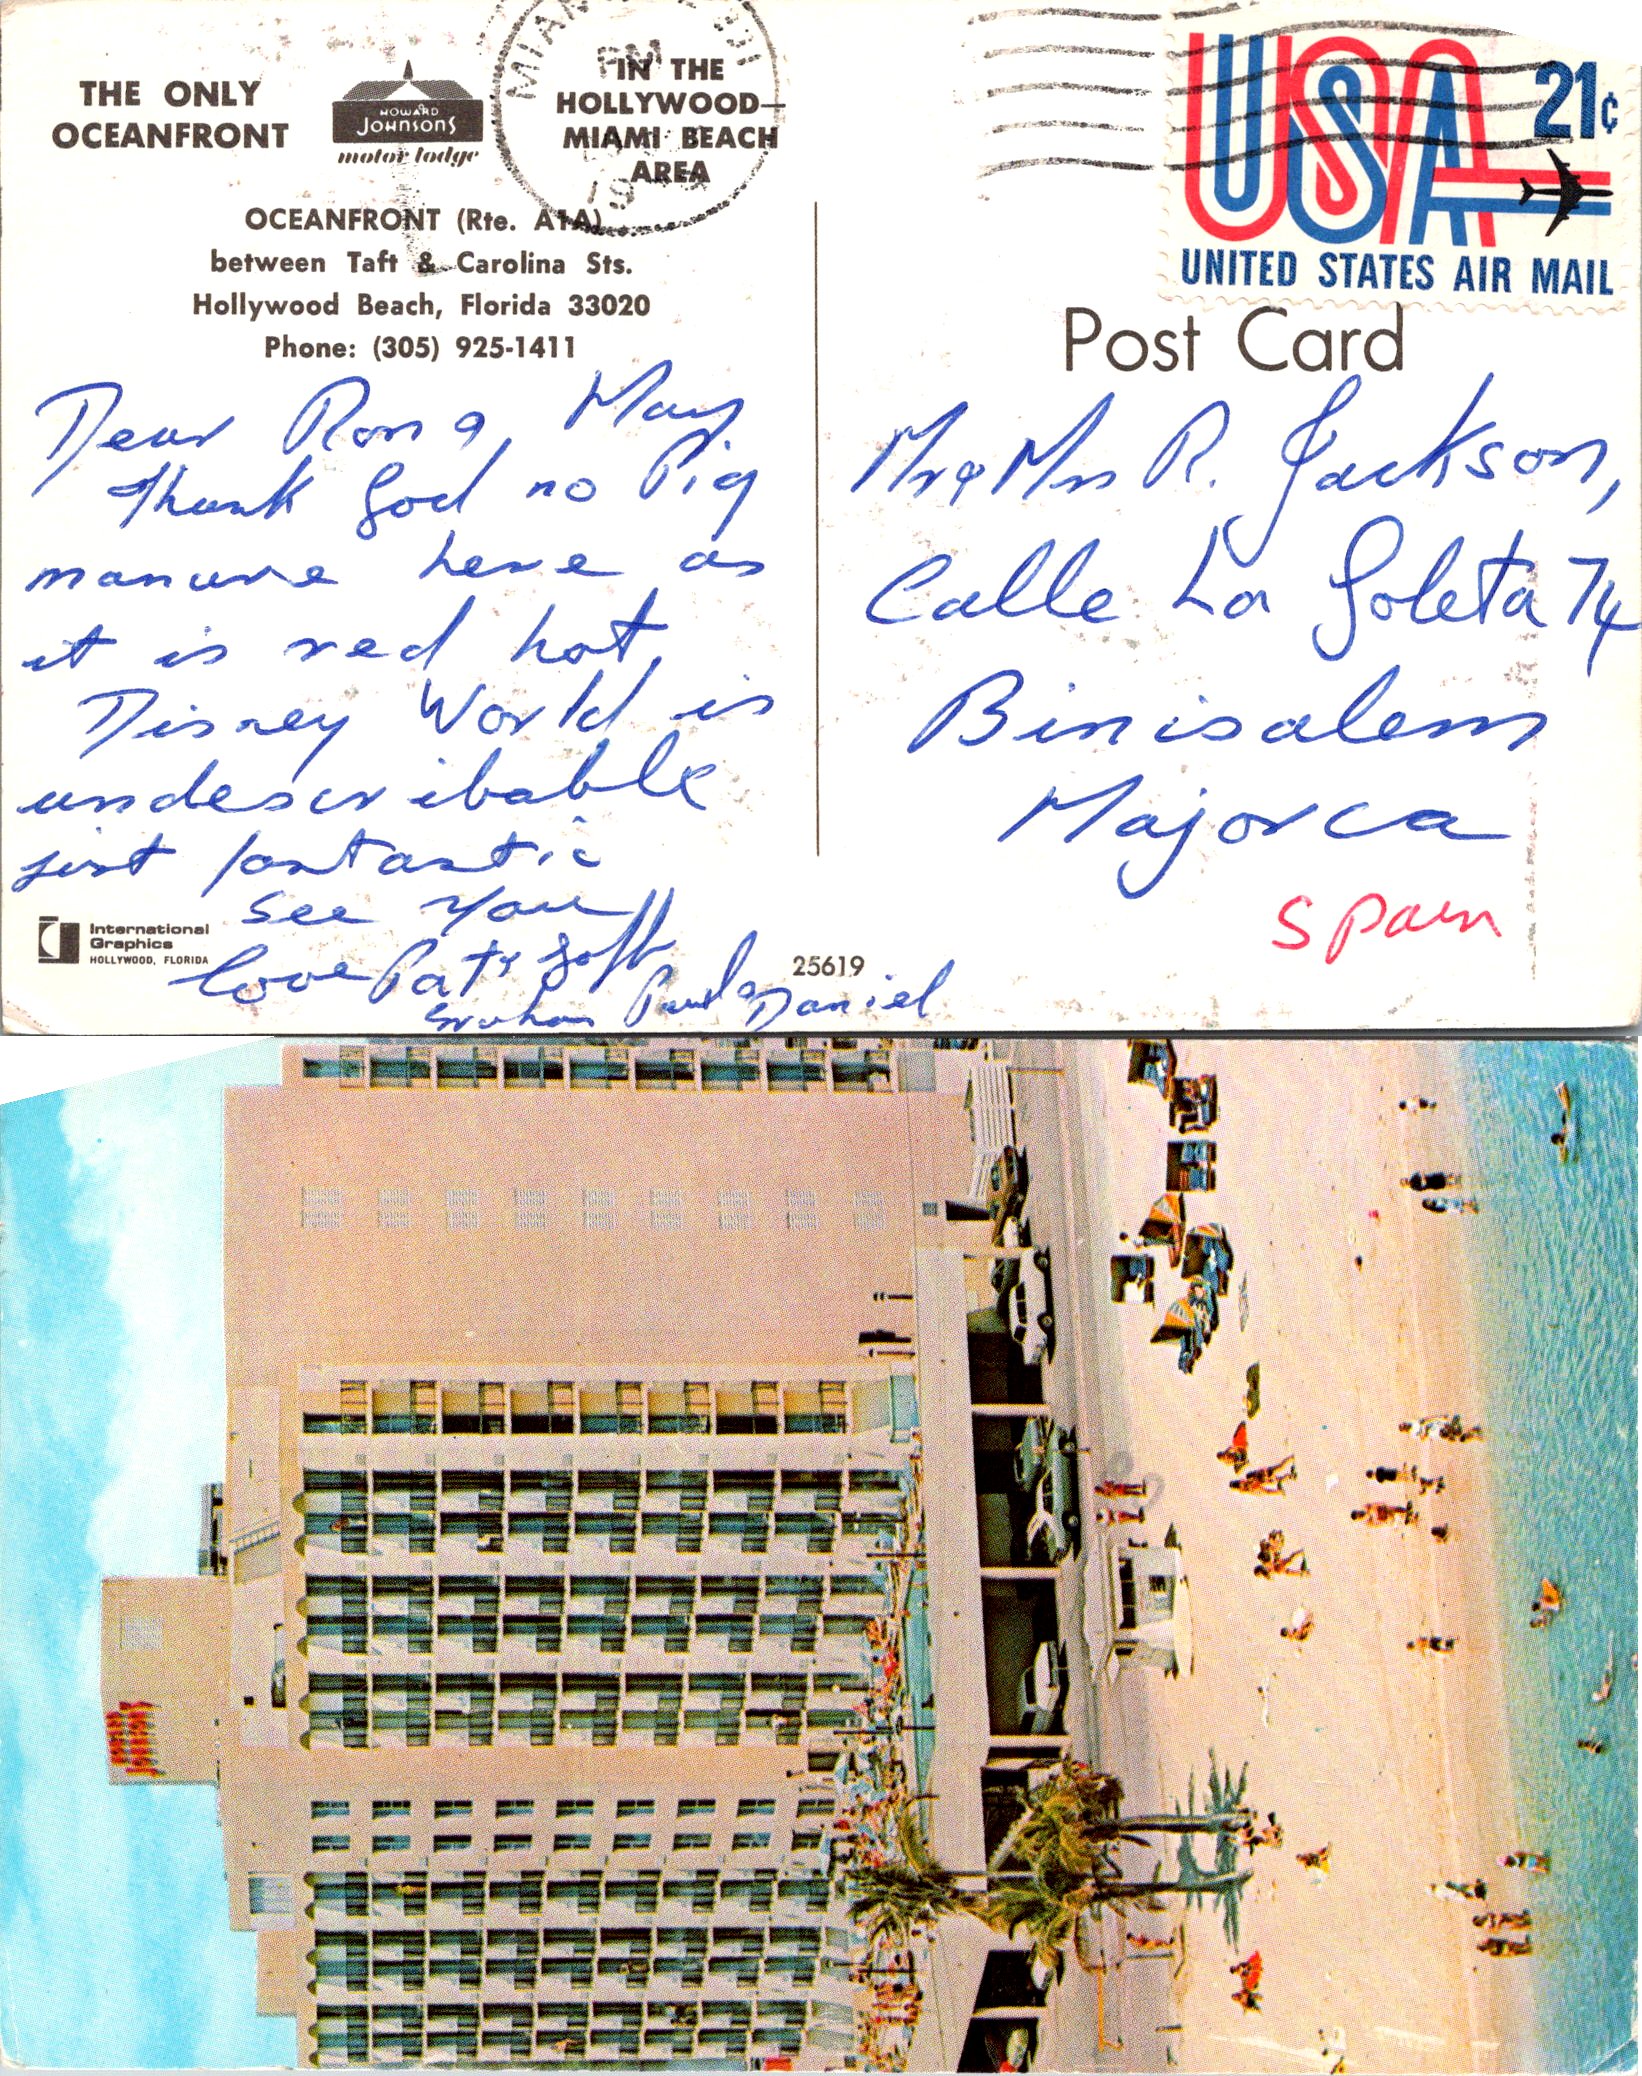 THE ONLY
OCEANFRONT
HOWARD
JOHNSON'S
motor lodge
IN THE
HOLLYWOOD—
MIAMI BEACH
AREA
OCEANFRONT (Rte. A1A)
between Taft & Carolina Sts.
Hollywood Beach, Florida 33020
Phone: (305) 925-1411
MIAMI
PM
19
USA
21¢
UNITED STATES AIR MAIL
Post Card
Dear Ron & May
Thank God no Pig
manure here as
it is red hot,
Disney World is
undescribable
just fantastic
See You
Love Pat & Goff
Graham Paul & Daniel
Mr & Mrs R. Jackson,
Calle La Goleta 74
Binisalem
Majorca
Spain
International
Graphics
HOLLYWOOD, FLORIDA
25619
HOWARD
JOHNSON'S